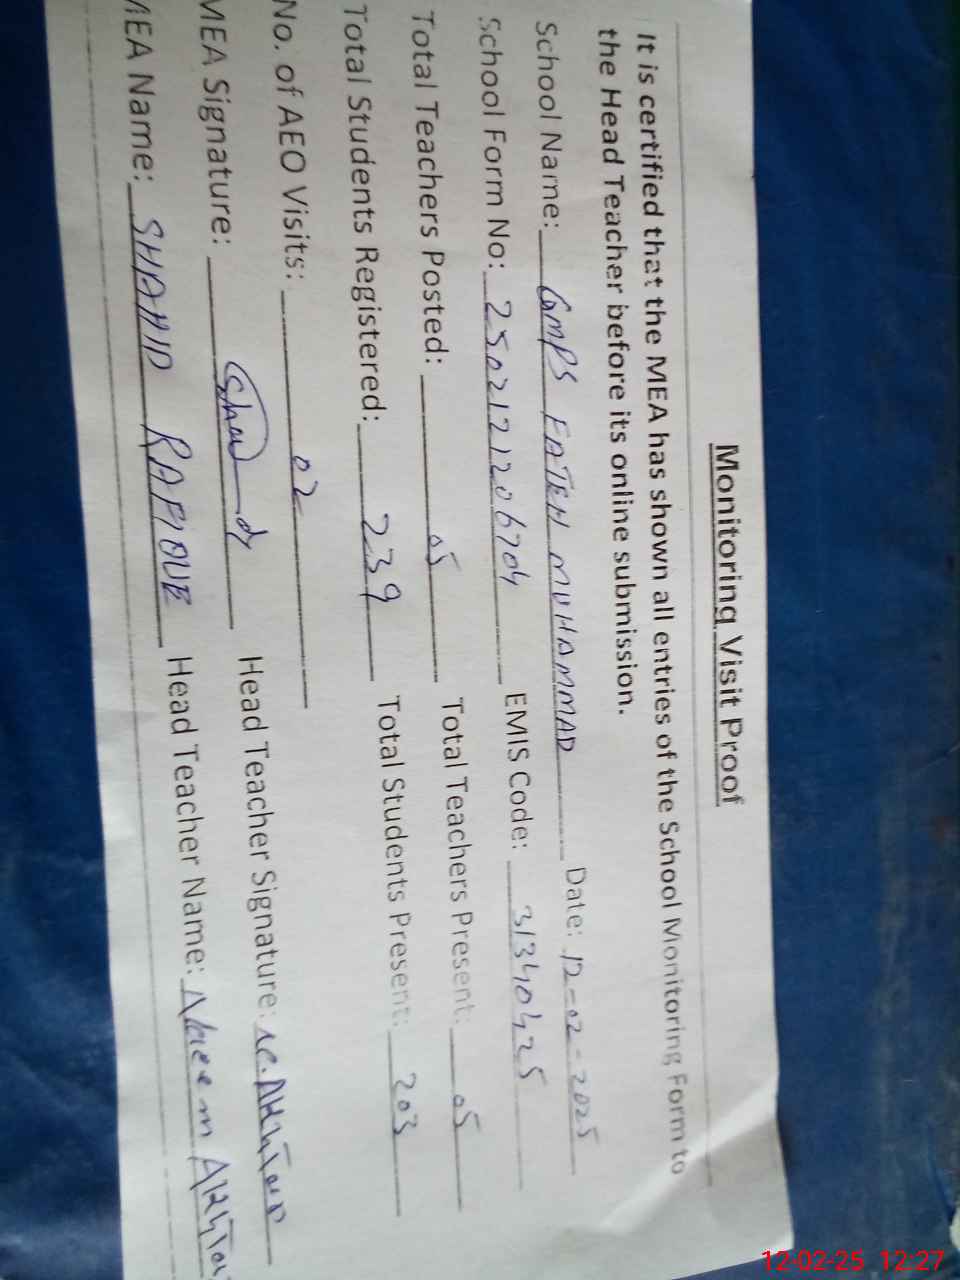 Monitoring Visit Proof
It is certified that the MEA has shown all entries of the School Monitoring Form to
the Head Teacher before its online submission.
School Name: GMPS FATEH MUHAMMAD Date: 12-02-2025
School Form No: 2502121206704 EMIS Code: 31340425
Total Teachers Posted: 05 Total Teachers Present: 05
Total Students Registered: 239 Total Students Present: 203
No. of AEO Visits: 02
MEA Signature: Head Teacher Signature:
MEA Name: SHAHID RAFIQUE Head Teacher Name:
12-02-25 12:27